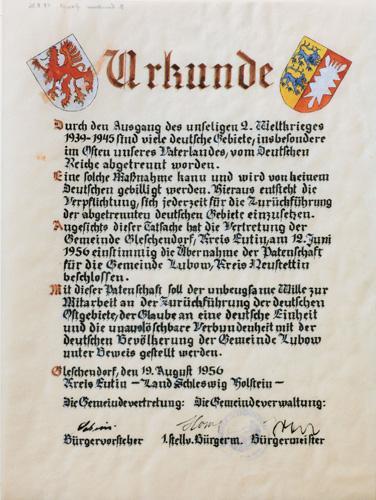 Urkunde
Durch den Ausgang des unseligen 2. Weltkrieges
1939-1945 sind viele deutsche Gebiete, insbesondere
im Osten unseres Vaterlandes, vom Deutschen
Reiche abgetrennt worden.
Eine solche Maßnahme kann und wird von keinem
Deutschen gebilligt werden. Hieraus entsteht die
Verpflichtung, sich jederzeit für die Zurückführung
der abgetrennten deutschen Gebiete einzusetzen.
Angesichts dieser Tatsache hat die Vertretung der
Gemeinde Gleschendorf, Kreis Eutin, am 12. Juni
1956 einstimmig die Übernahme der Patenschaft
für die Gemeinde Lubow, Kreis Neustettin
beschlossen.
Mit dieser Patenschaft soll der unbeugsame Wille zur
Mitarbeit an der Zurückführung der deutschen
Ostgebiete, der Glaube an eine deutsche Einheit
und die unauslöschbare Verbundenheit mit der
deutschen Bevölkerung der Gemeinde Lubow
unter Beweis gestellt werden.
Gleschendorf, den 19. August 1956
Kreis Eutin - Land Schleswig Holstein -
Die Gemeindevertretung: Die Gemeindeverwaltung:
Bürgervorsteher 1. stellv. Bürgerm. Bürgermeister